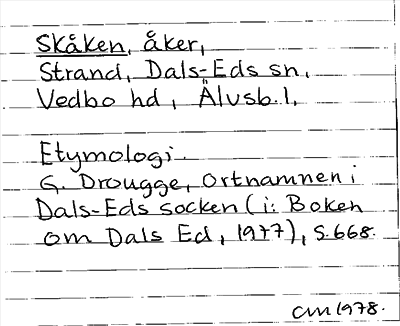 Skåken, åker,
Strand, Dals-Eds sn,
Vedbo hd, Älvsb. l.
Etymologi.
G. Drougge, Ortnamnen i
Dals-Eds socken (i: Boken
om Dals Ed, 1977), s. 668.
CM 1978.